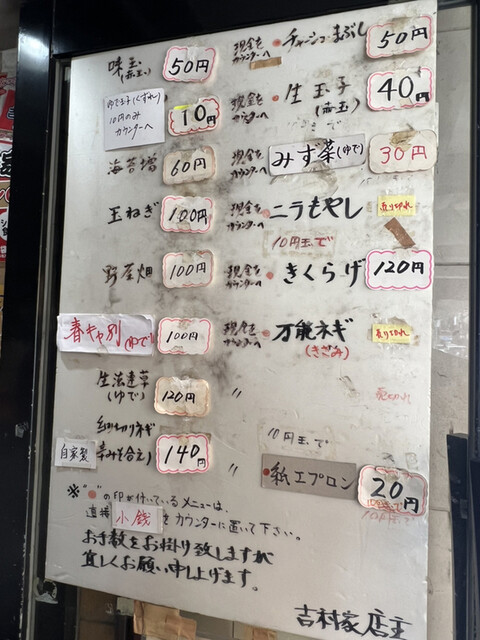 味玉
(赤玉)
50円
ゆで玉子(くずれ)
10円のみ
カウンターへ
10円
海苔増
60円
玉ねぎ
100円
野菜畑
100円
春キャ別(ゆで)
100円
生法連草
(ゆで)
120円
〃
糸切りネギ
辛み合え)
自家製
140円
〃
現金を
カウンターへ
チャーシューまぶし
50円
現金を
カウンターへ
生玉子
(赤玉)
40円
現金を
カウンターへ
みず菜(ゆで)
30円
現金を
カウンターへ
ニラもやし
売り切れ
10円玉で
現金を
カウンターへ
きくらげ
120円
現金を
カウンターへ
万能ネギ
(きざみ)
売り切れ
売り切れ
10円玉で
紙エプロン
20円
10円玉で
※"●"の印が付いているメニューは、
直接小銭をカウンターに置いて下さい。
お手数をお掛け致しますが
宜しくお願い申し上げます。
吉村家店主